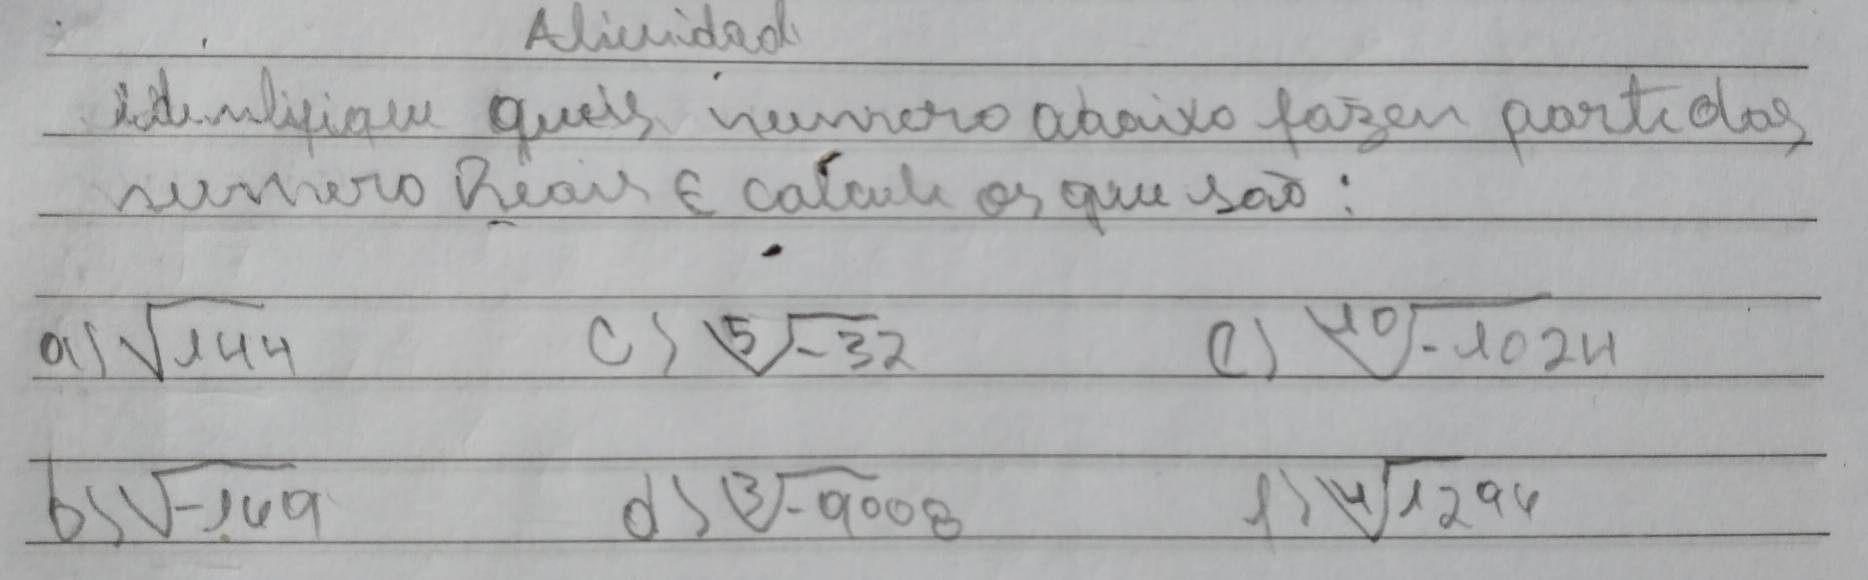 Atividad
identifique queis numero abaixo fazen parte dos
numero Reais e calcule os que são:
a) √144 c) ⁵√-32 e) ¹⁰√-1024
b) √-149 d) ³√-9008 f) ⁴√1294